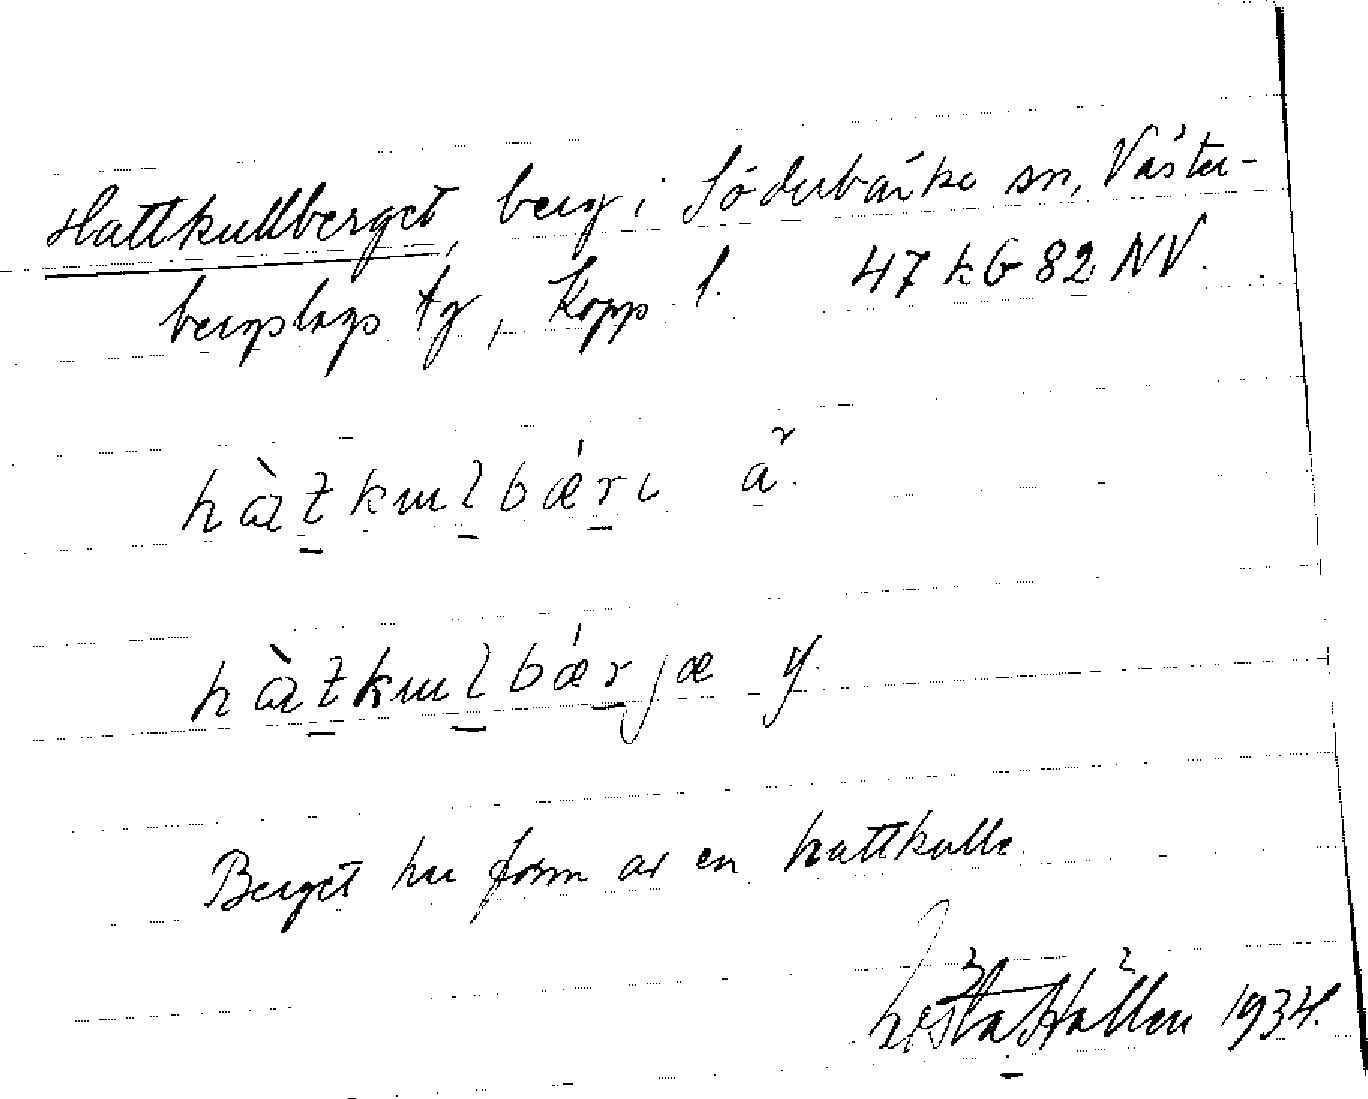 Hattkullberget, berg i Söderbärke sn, Väster-
bergslags tg, Kopp l. 47 kG 82 NV.
hàtkulbǽrι ä.
hàtkulbǽrjæ y.
Berget har form av en hattkulle.
Hållen 1934.